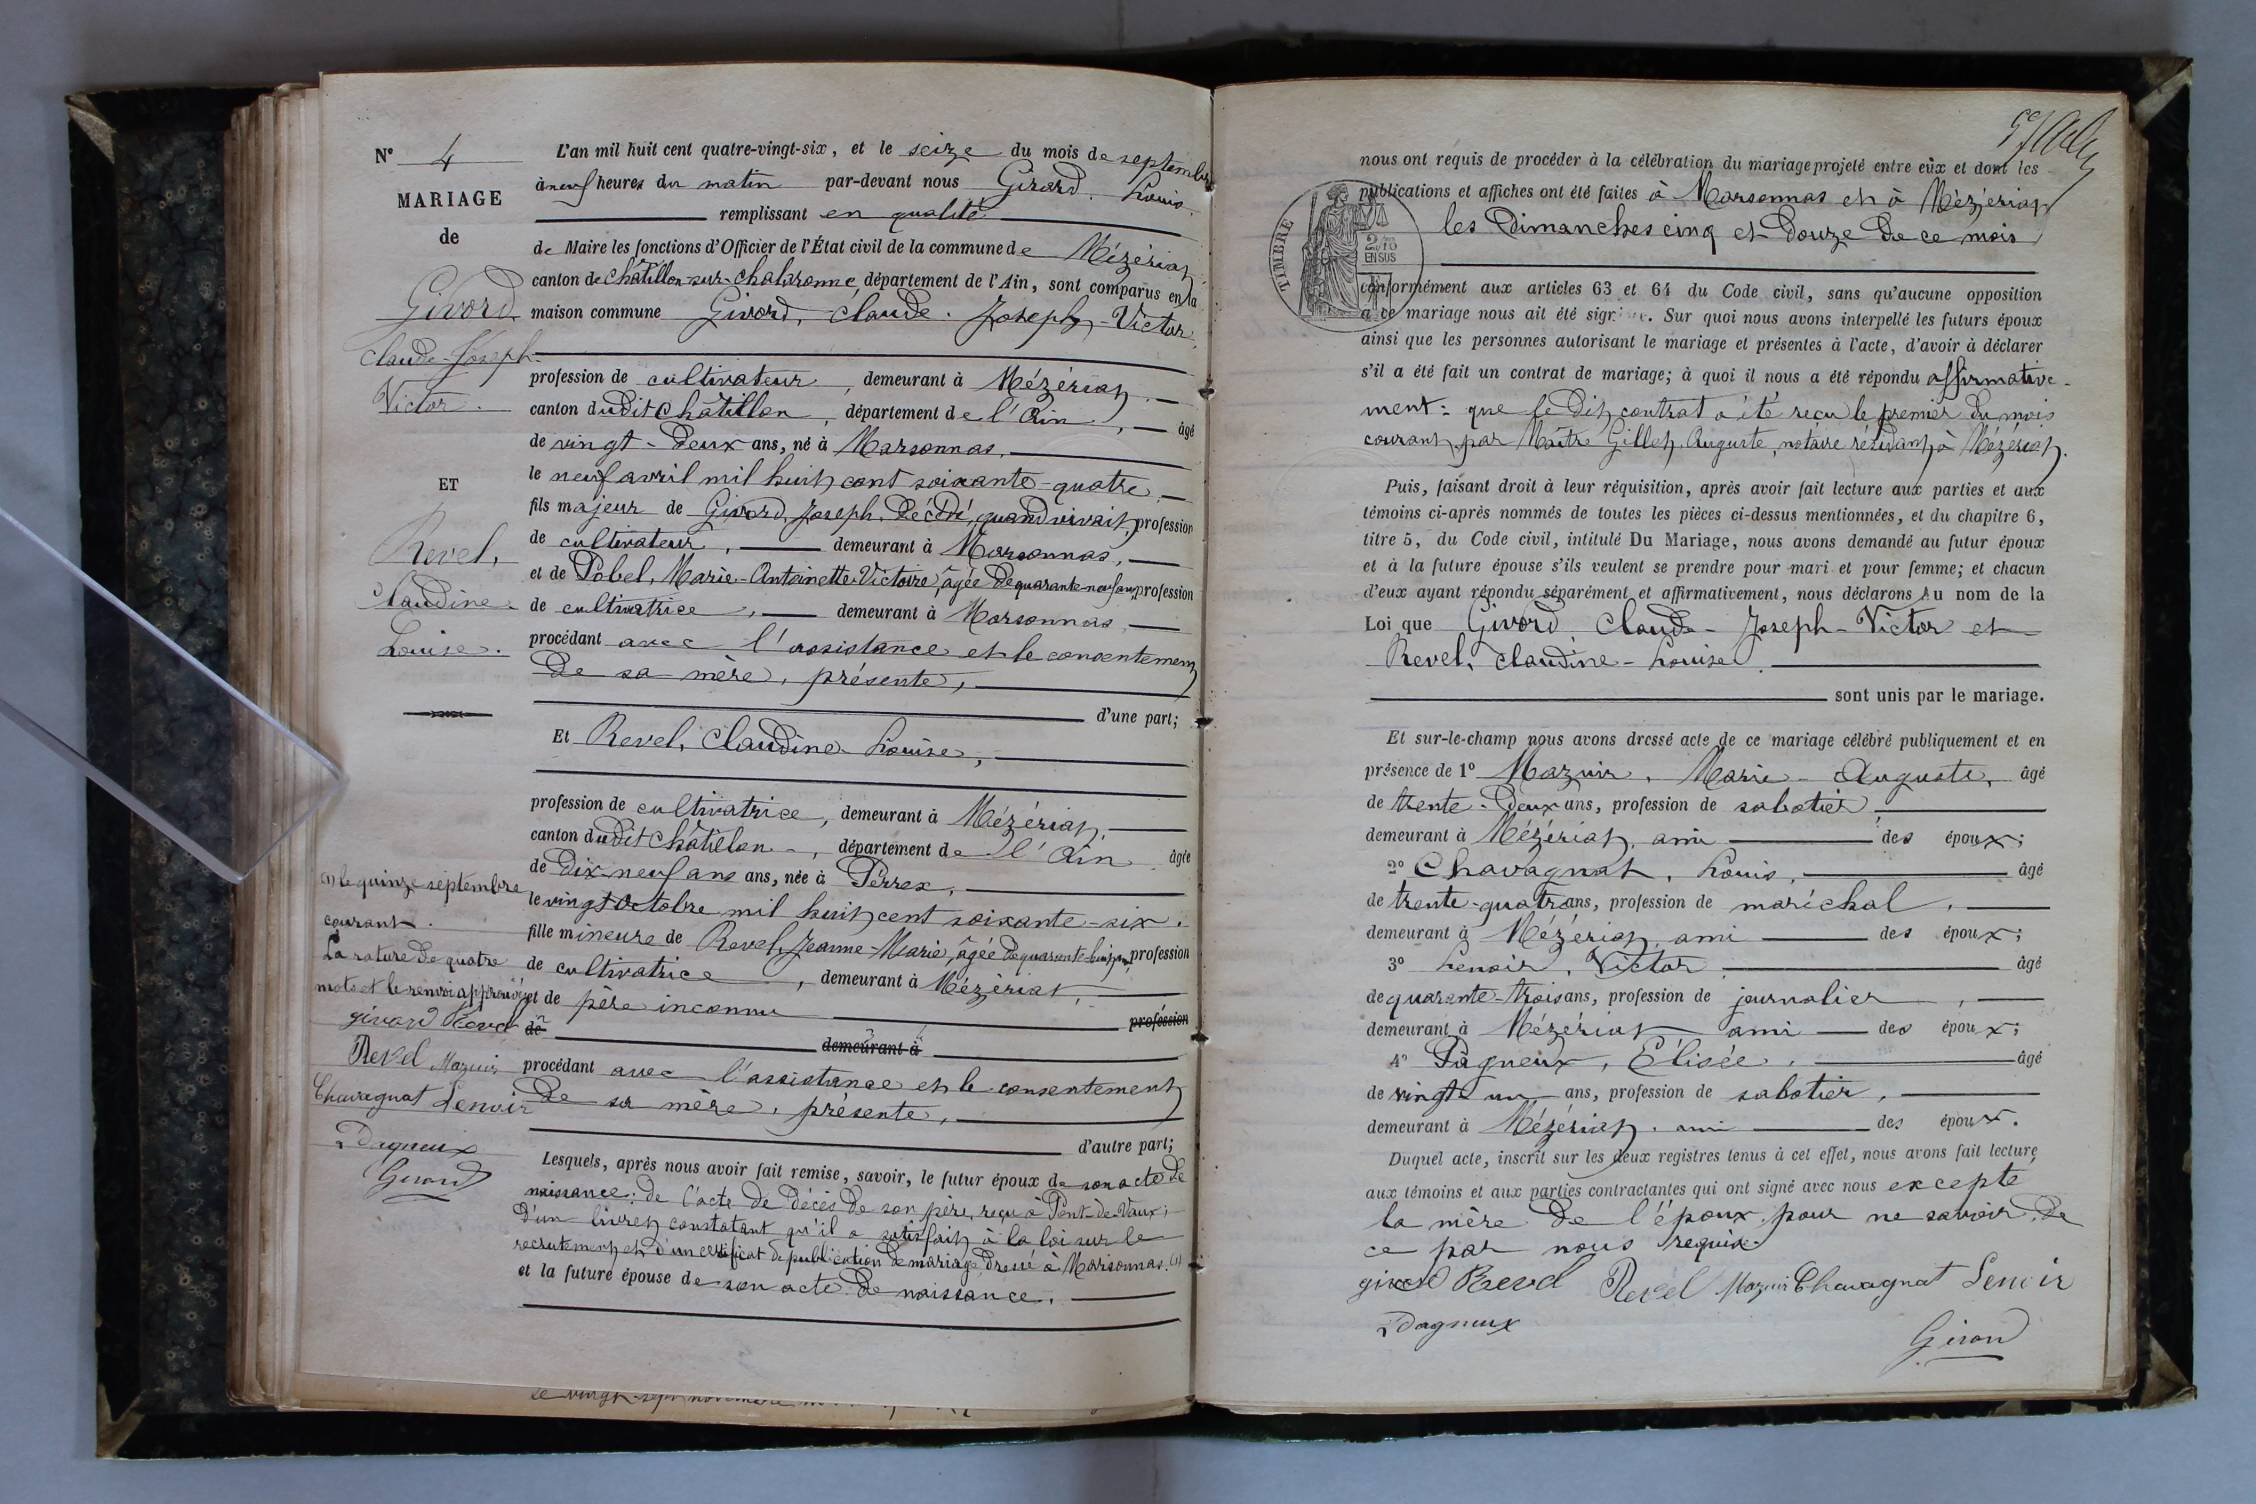 N° 4
MARIAGE
de
Givord
Claude-Joseph-
Victor.
ET
Revel,
Claudine-
Louise.
(1) le quinze septembre
courant.
La rature de quatre
mots et le renvoi approuvés
givord Revel
Revel Mazuir
Chavagnat Lenoir
Dagneux
Girard
L'an mil huit cent quatre-vingt-six, et le seize du mois de septembre
à neuf heures du matin par-devant nous Girard, Louis,
remplissant en qualité
de Maire les fonctions d'Officier de l'État civil de la commune de Mézériat,
canton de Châtillon-sur-Chalaronne, département de l'Ain, sont comparus en la
maison commune Givord, Claude-Joseph-Victor,
profession de cultivateur, demeurant à Mézériat,
canton dudit Châtillon, département de l'Ain, âgé
de vingt-deux ans, né à Marsonnas,
le neuf avril mil huit cent soixante-quatre,
fils majeur de Givord, Joseph, décédé, quand vivait, profession
de cultivateur, demeurant à Marsonnas,
et de Pobel, Marie-Antoinette-Victoire, âgée de quarante-neuf ans, profession
de cultivatrice, demeurant à Marsonnas,
procédant avec l'assistance et le consentement
de sa mère, présente,
d'une part;
Et Revel, Claudine-Louise,
profession de cultivatrice, demeurant à Mézériat,
canton dudit Châtillon, département de l'Ain âgée
de dix-neuf ans ans, née à Perrex,
le vingt octobre mil huit cent soixante-six,
fille mineure de Revel, Jeanne-Marie, âgée de quarante-huit ans, profession
de cultivatrice, demeurant à Mézériat,
et de père inconnu profession
de demeurant à
procédant avec l'assistance et le consentement
de sa mère, présente,
d'autre part;
Lesquels, après nous avoir fait remise, savoir, le futur époux de son acte de
naissance; de l'acte de décès de son père, reçu à Pont-de-Vaux;
d'un livret constatant qu'il a satisfait à la loi sur le
recrutement et d'un certificat de publication de mariage dressé à Marsonnas (1)
et la future épouse de son acte de naissance.
le vingt-sept novembre
nous ont requis de procéder à la célébration du mariage projeté entre eux et dont les
publications et affiches ont été faites à Marsonnas et à Mézériat
les Dimanches cinq et douze de ce mois
TIMBRE
2/10
EN SUS
conformément aux articles 63 et 64 du Code civil, sans qu'aucune opposition
à ce mariage nous ait été signifiée. Sur quoi nous avons interpellé les futurs époux
ainsi que les personnes autorisant le mariage et présentes à l'acte, d'avoir à déclarer
s'il a été fait un contrat de mariage; à quoi il nous a été répondu affirmative-
ment: que le dit contrat a été reçu le premier du mois
courant par Maître Gillet, Auguste, notaire résidant à Mézériat.
Puis, faisant droit à leur réquisition, après avoir fait lecture aux parties et aux
témoins ci-après nommés de toutes les pièces ci-dessus mentionnées, et du chapitre 6,
titre 5, du Code civil, intitulé Du Mariage, nous avons demandé au futur époux
et à la future épouse s'ils veulent se prendre pour mari et pour femme; et chacun
d'eux ayant répondu séparément et affirmativement, nous déclarons Au nom de la
Loi que Givord Claude-Joseph-Victor et
Revel, Claudine-Louise
sont unis par le mariage.
Et sur-le-champ nous avons dressé acte de ce mariage célébré publiquement et en
présence de 1° Mazuir, Marie-Auguste, âgé
de trente-deux ans, profession de sabotier
demeurant à Mézériat, ami des époux;
2° Chavagnat, Louis, âgé
de trente-quatre ans, profession de maréchal,
demeurant à Mézériat, ami des époux;
3° Lenoir, Victor âgé
de quarante-trois ans, profession de journalier,
demeurant à Mézériat ami des époux;
4° Dagneux, Élisée, âgé
de vingt-un ans, profession de sabotier,
demeurant à Mézériat, ami des époux.
Duquel acte, inscrit sur les deux registres tenus à cet effet, nous avons fait lecture
aux témoins et aux parties contractantes qui ont signé avec nous excepté
la mère de l'époux pour ne savoir, de
ce par nous requise.
givord Revel Revel Mazuir Chavagnat Lenoir
Dagneux
Girard